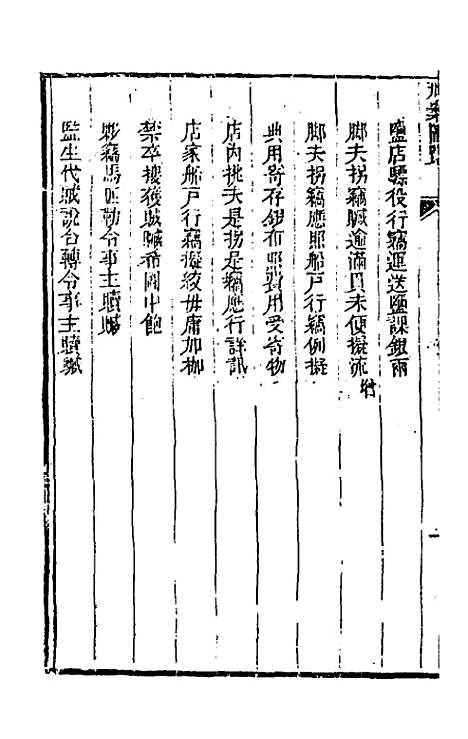 鹽店騾役行竊運送鹽課銀兩
脚夫拐竊贓逾滿貫未便擬流
脚夫拐竊應照船戶行竊例擬
典用寄存銀布照費用受寄物
店內挑夫是拐是竊應行詳訊
店家船戶行竊擬絞毋庸加枷
禁卒搜獲賊贓希圖中飽
夥竊馬匹勒令事主贖贓
監生代賊說合轉令事主贖贓